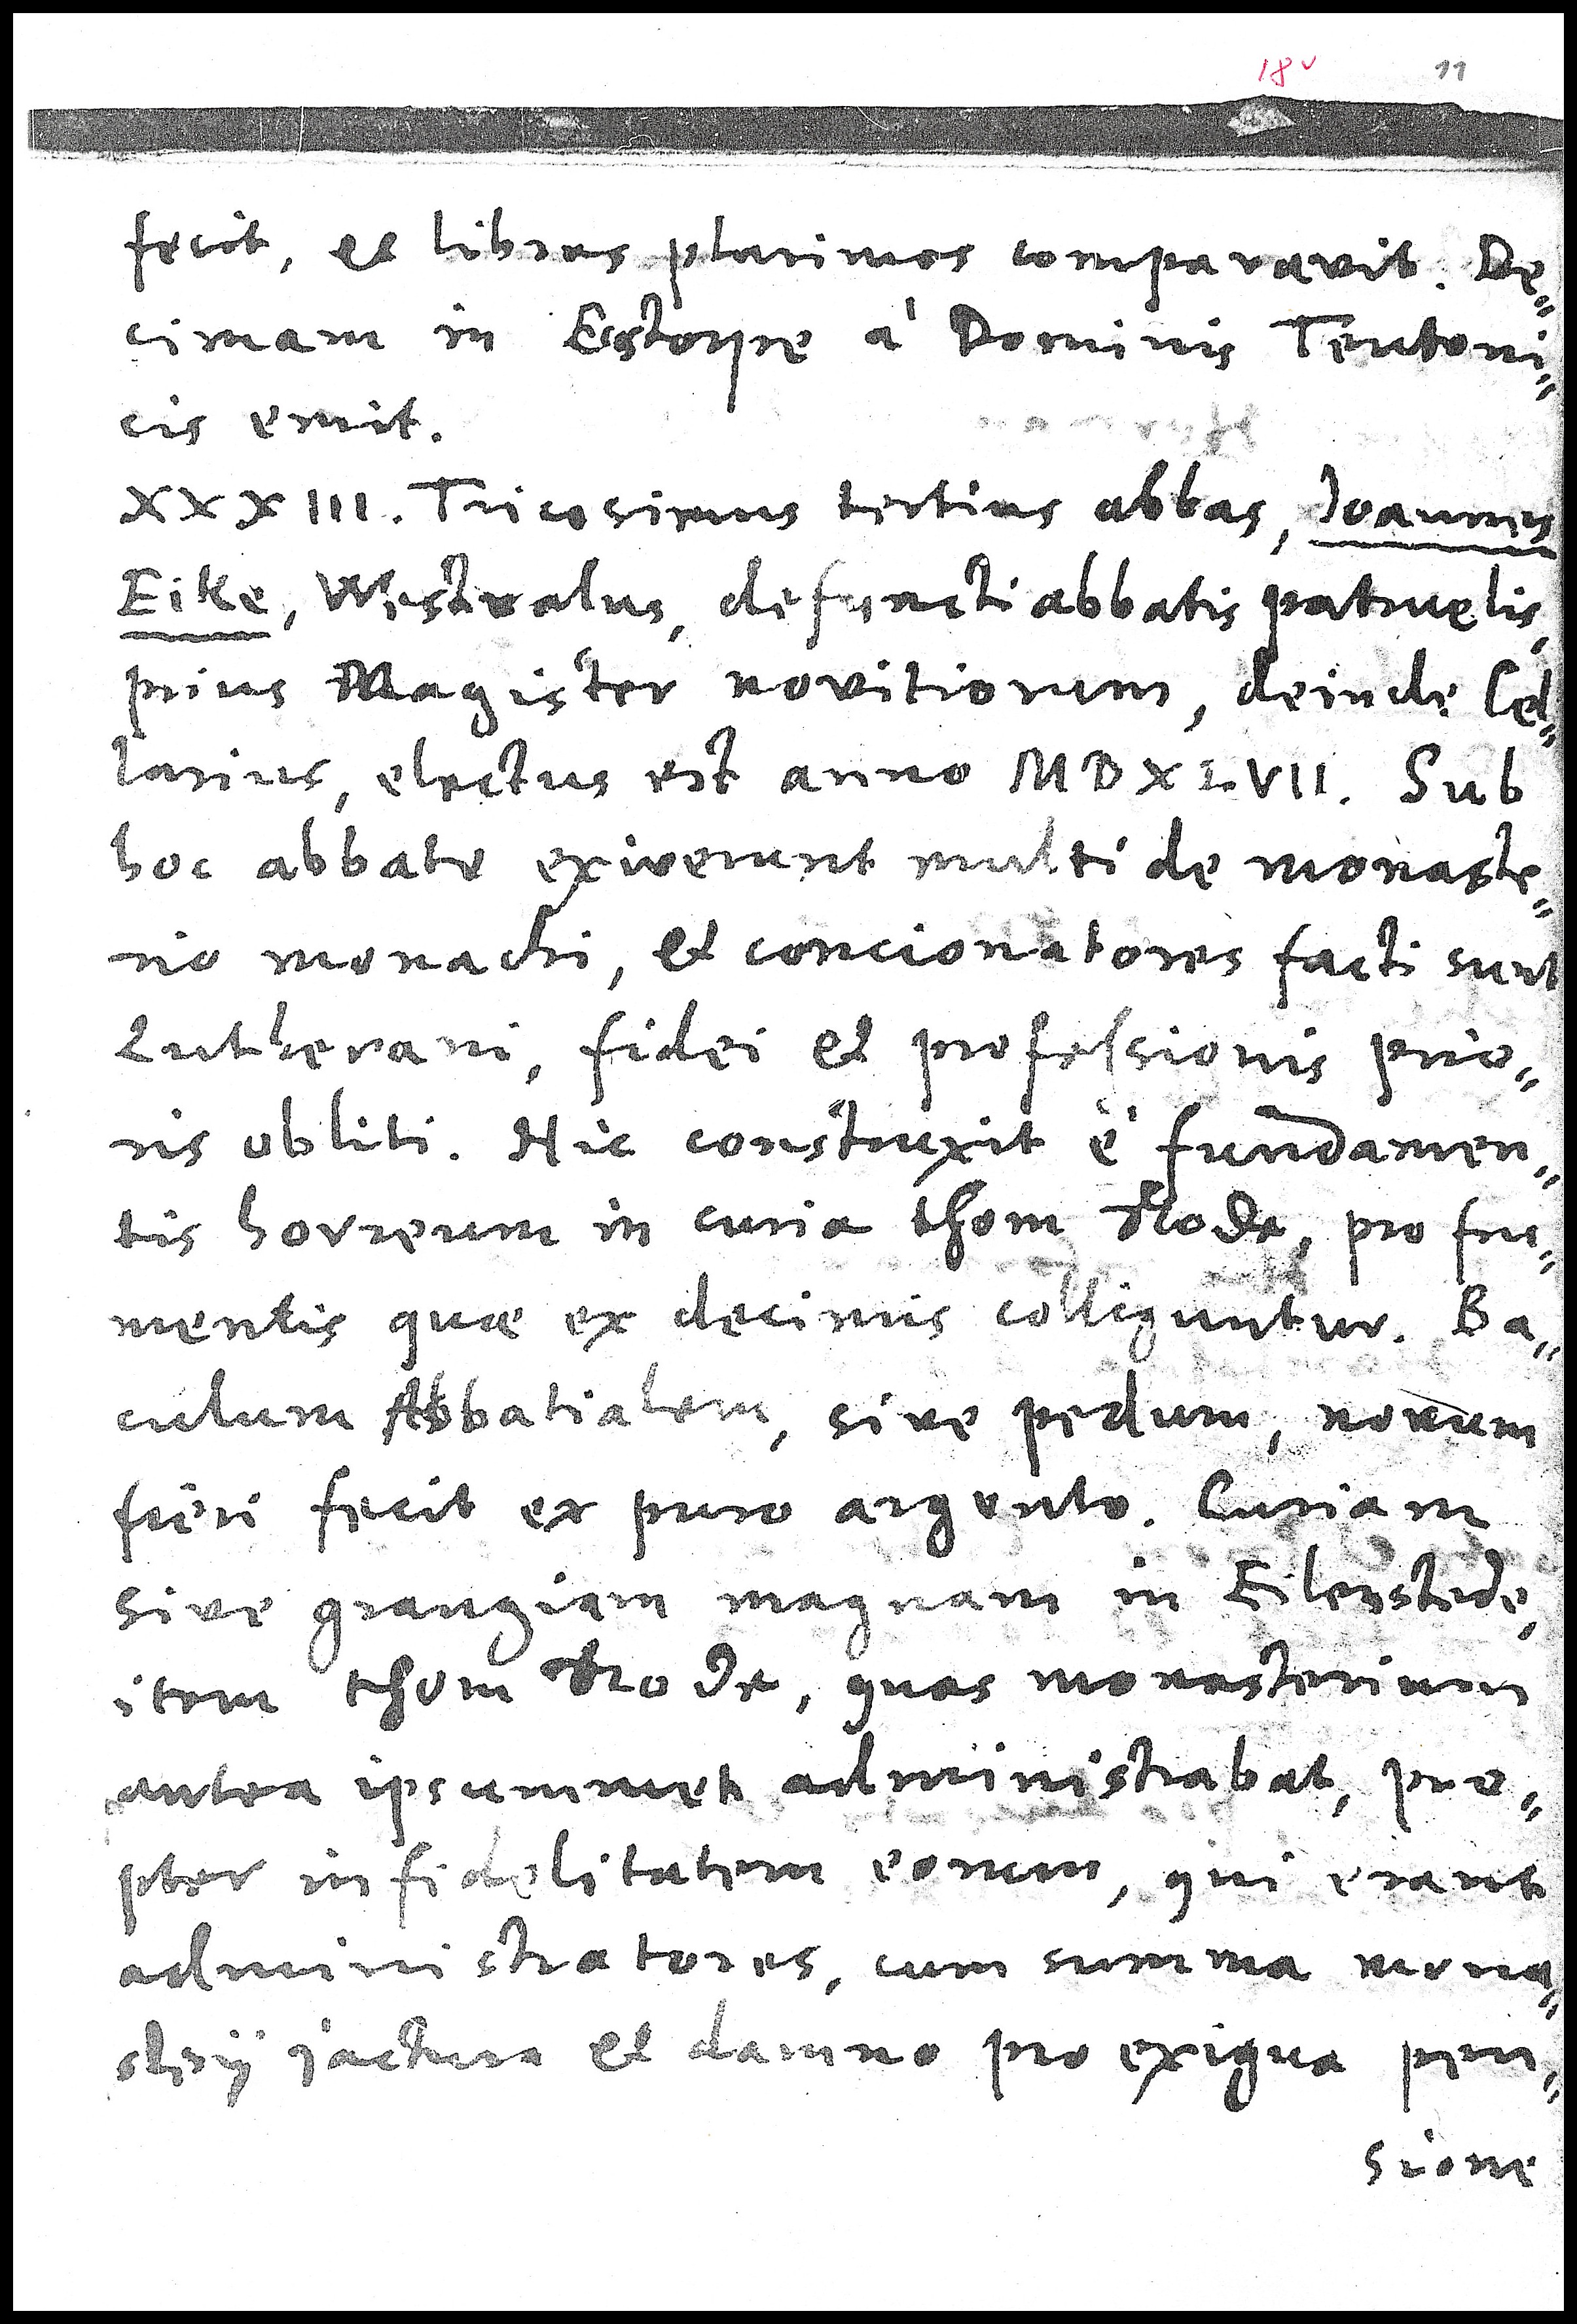 18v 11
fecit, et libros plurimos comparavit. De„
cimam in Estorpe à Dominis Teutoni„
cis emit.
XXXIII. Tricesimus tertius abbas, Joannes
Eike, Westvalus, defuncti abbatis patruelis,
prius Magister novitiorum, deinde Cel„
larius, electus est anno MDXLVII. Sub
hoc abbate exiverunt multi de monaste„
rio monachi, et concionatores facti sunt
Lutherani, fidei et profeſsionis prio„
ris obliti. Hic construxit è fundamen„
tis horreum in curia thom Rode, pro fru„
mentis quæ ex decimis colliguntur. Ba„
culum Abbatialem, sive pedum, novum
fieri fecit ex puro argento. Curiam
sive grangiam magnam in Eilenstede,
item thom Rode, quas monasterium
antea ipsummet administrabat, pro„
pter infidelitatem eorum, qui erant
administratores, cum summa mona„
sterij jactura et damno pro exigua pen„
sione